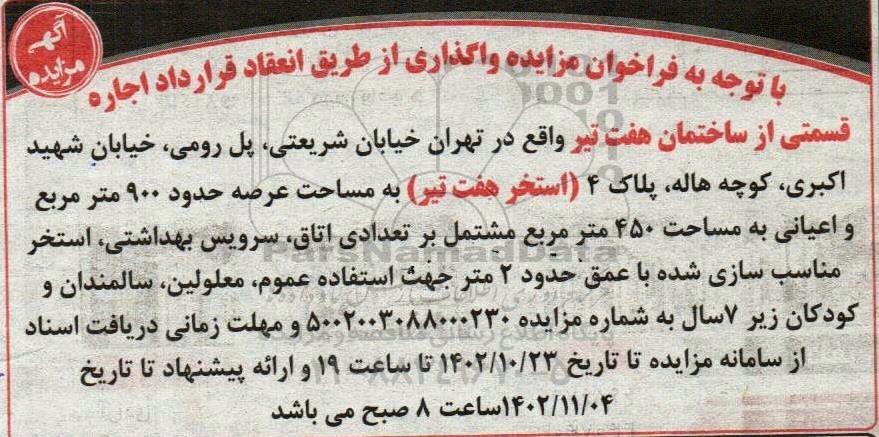 آگهی
مزایده
با توجه به فراخوان مزایده واگذاری از طریق انعقاد قرارداد اجاره
قسمتی از ساختمان هفت تیر واقع در تهران خیابان شریعتی، پل رومی، خیابان شهید
اکبری، کوچه هاله، پلاک ۴ (استخر هفت تیر) به مساحت عرصه حدود ۹۰۰ متر مربع
و اعیانی به مساحت ۴۵۰ متر مربع مشتمل بر تعدادی اتاق، سرویس بهداشتی، استخر
ParsNamadData
مناسب سازی شده با عمق حدود ۲ متر جهت استفاده عموم، معلولین، سالمندان و
کودکان زیر ۷سال به شماره مزایده ۵۰۰۲۰۰۳۰۸۸۰۰۰۲۳۰ و مهلت زمانی دریافت اسناد
از سامانه مزایده تا تاریخ ۱۴۰۲/۱۰/۲۳ تا ساعت ۱۹ و ارائه پیشنهاد تا تاریخ
۱۴۰۲/۱۱/۰۴ساعت ۸ صبح می باشد